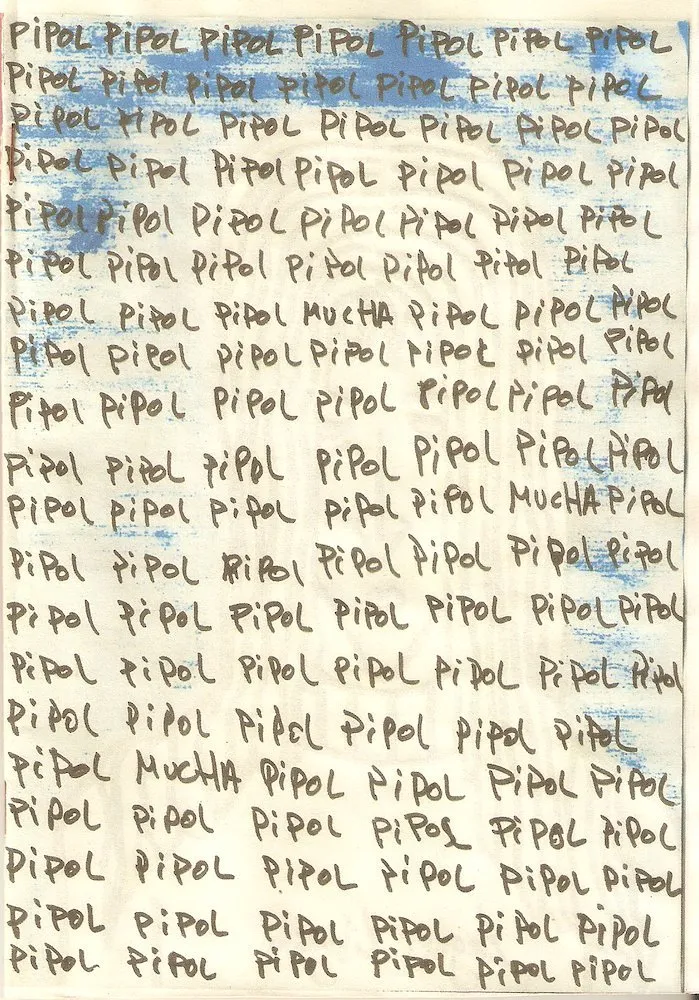 PiPOL PiPOL PiPOL PiPOL PiPOL PiPOL PiPOL
PiPOL PiPOl PiPOl PiPOL PiPOL PiPOL PiPOL
PiPOL PiPOL PiPOL PiPOL PiPOL PiPOL PiPOL
PiPOL PiPOl PiPOl PiPOL PiPOL PiPOL PiPOL
PiPOl PiPOl PiPOL PiPOL PiPOL PiPOL PiPOL
PiPOL PiPOl PiPOl PiPOl PiPOl PiPOl PiPOL
PiPOL PiPOL PiPOL MUCHA PiPOL PiPOL PiPOL
PiPOl PiPOl PiPOL PiPOL PiPOL PiPOl PiPOL
PiPOl PiPOL PiPOL PiPOL PiPOL PiPOL PiPOl
PiPOl PiPOL PiPOL PiPOL PiPOL PiPOL PiPOL
PiPOL PiPOL PiPOL PiPOL PiPOl MUCHA PiPOL
PiPOl PiPOL PiPOl PiPOl PiPOl PiPOl PiPOl
PiPOl PiPOL PiPOL PiPOL PiPOL PiPOL PiPOL
PiPOL PiPOL PiPOL PiPOL PiPOL PiPOL PiPOl
PiPOl PiPOL PiPOL PiPOL PiPOl PiPOL
PiPOL MUCHA PiPOL PiPOL PiPOL PiPOL
PiPOL PiPOl PiPOL PiPOL PiPOL PiPOL
PiPOL PiPOL PiPOL PiPOL PiPOL PiPOL
PiPOL PiPOL PiPOL PiPOL PiPOL PiPOL
PiPOL PiPOL PiPOL PiPOL PiPOL PiPOL